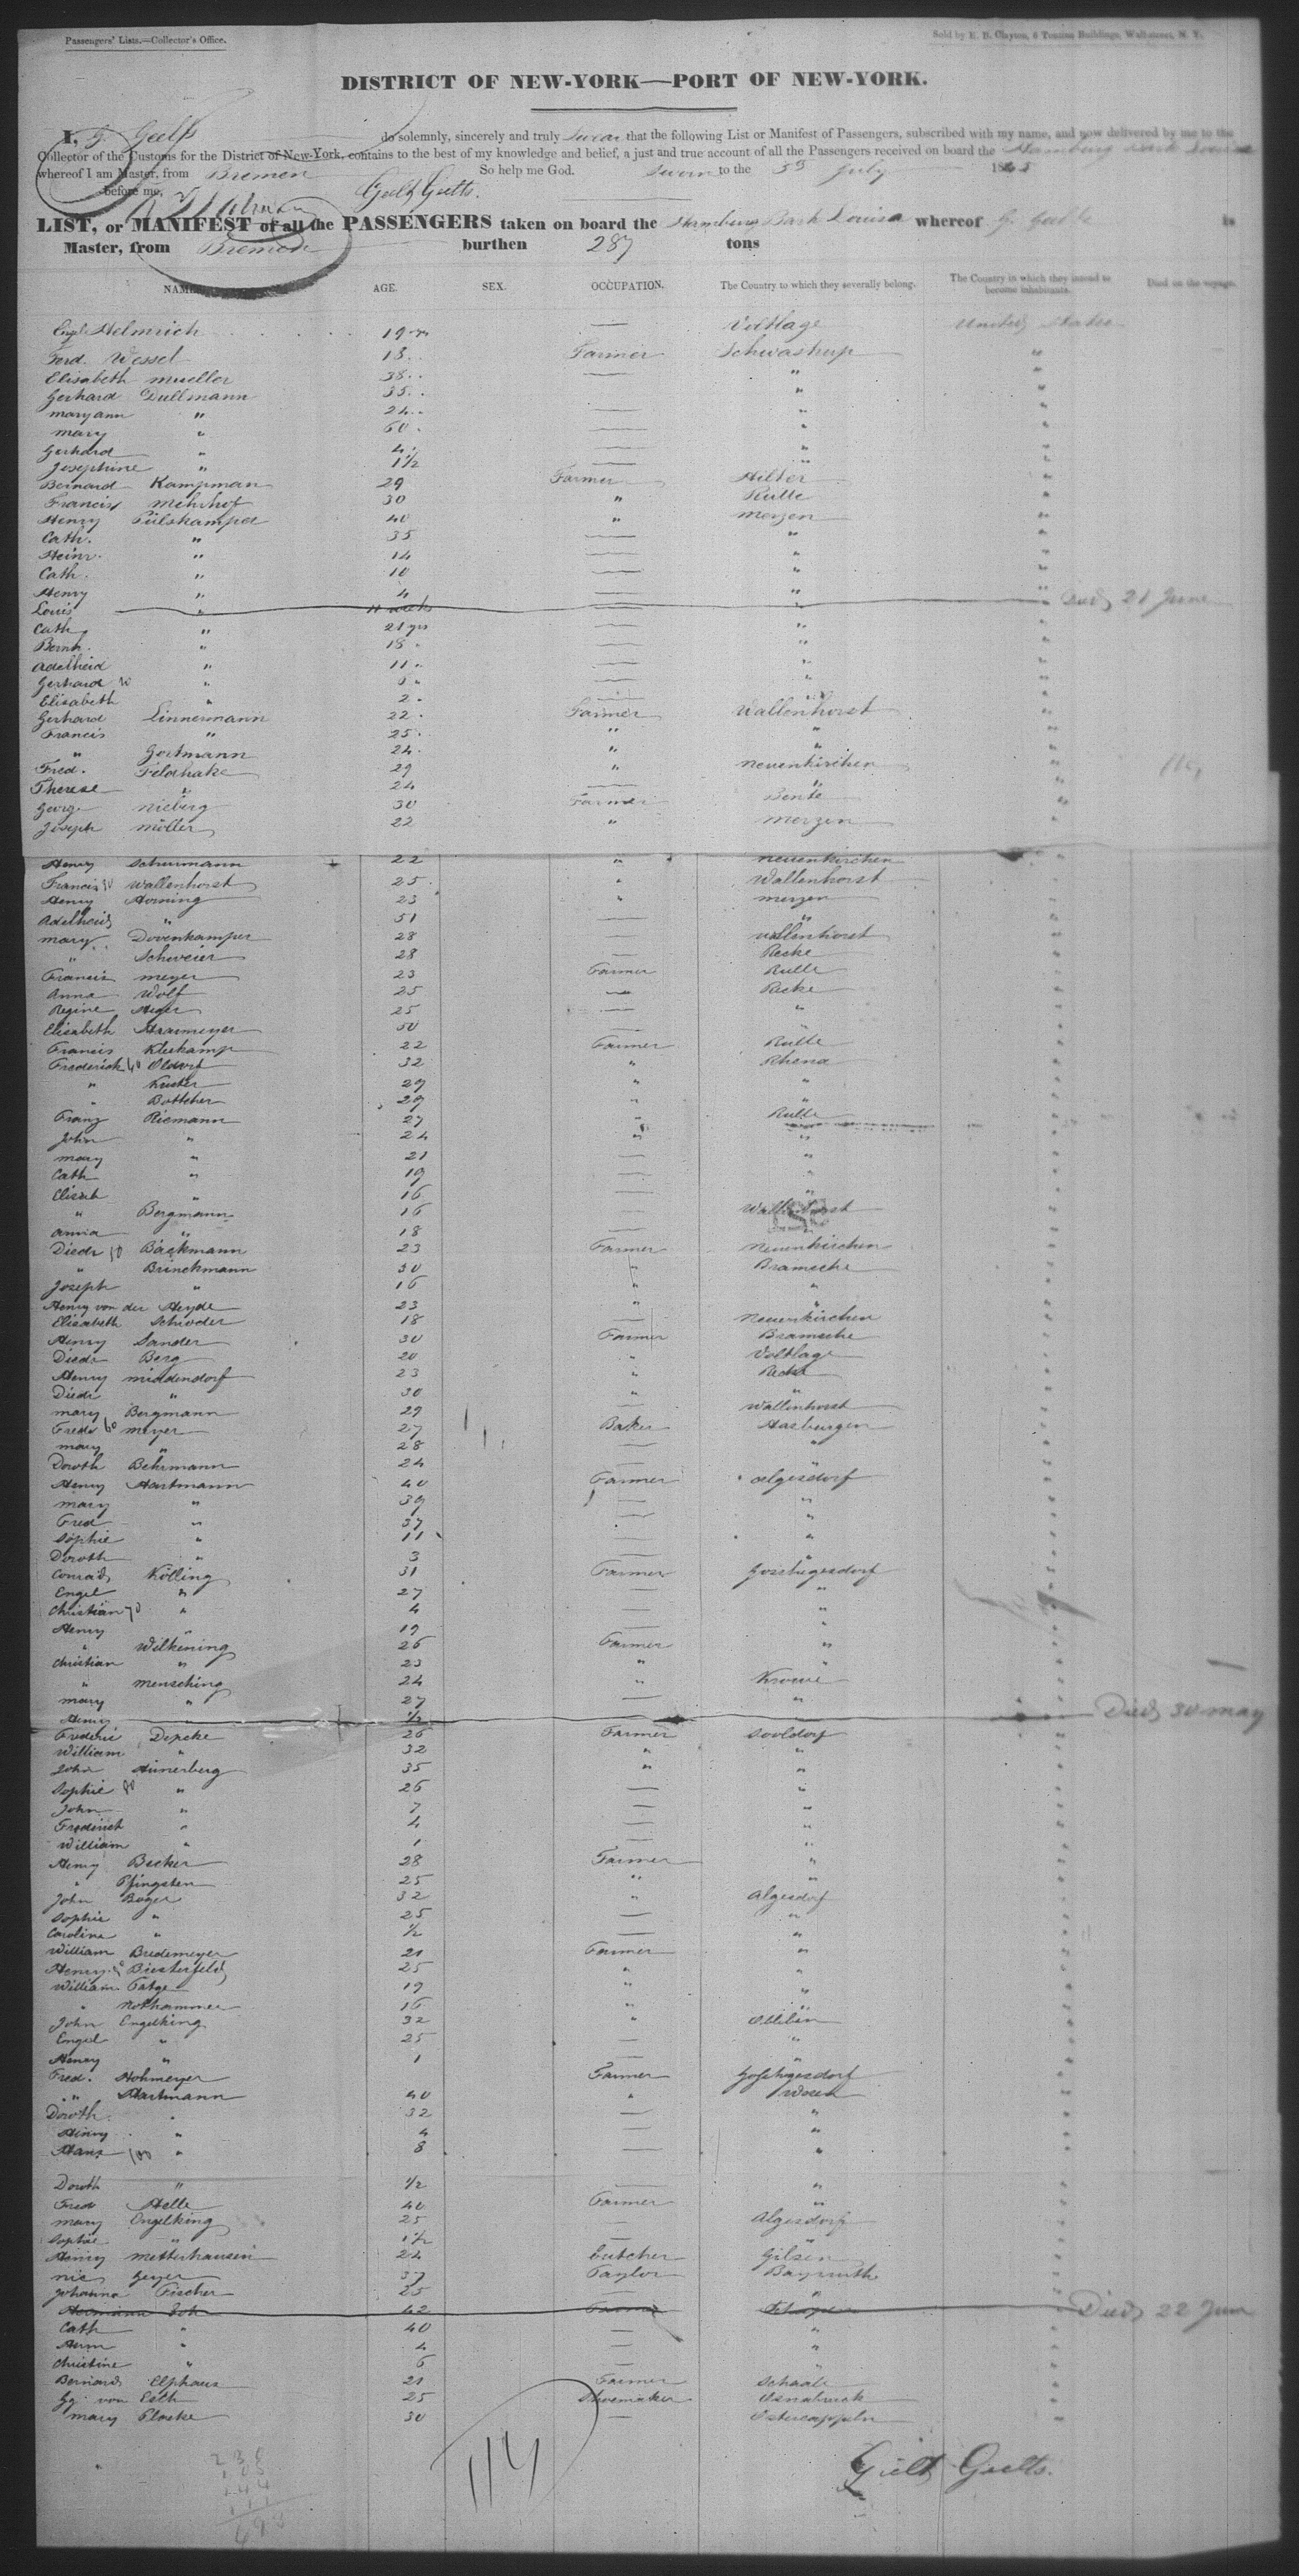 Passengers' Lists.—Collector's Office.
Sold by E. B. Clayton, 6 Tontine Buildings, Wall-street, N. Y.
DISTRICT OF NEW-YORK—PORT OF NEW-YORK.
I, G. Geelts do solemnly, sincerely and truly swear that the following List or Manifest of Passengers, subscribed with my name, and now delivered by me to the
Collector of the Customs for the District of New-York, contains to the best of my knowledge and belief, a just and true account of all the Passengers received on board the Hamburg Bark Louisa
whereof I am Master, from Bremen So help me God. Sworn to the July 1845
before me, Geelt Geelts.
LIST, or MANIFEST of all the PASSENGERS taken on board the Hamburg Bark Louisa whereof G. Geelts is
Master, from Bremen burthen 287 tons
NAMES AGE. SEX. OCCUPATION. The Country to which they severally belong. The Country in which they intend to become inhabitants. Died on the voyage.
Helmrich 19 yrs — Voltlage United States
Ferd. Wessel 18 Farmer "
Elisabeth Mueller 38 — " "
Gerhard Dullmann 35 " "
Maryann " 24 — " "
Mary " 60 — " "
Gerhard " 4 — " "
Josephine " 1 1/2 — " "
Bernard Kampman 29 Farmer Hilter "
Francis Mehrhof 30 " Rulle "
Henry Fülskamper 40 " Merzen "
Cath. " 35 — " "
Heinr. " 14 — " "
Cath. " 10 — " "
Henry " 4 — " "
Louis " weeks — " " Died 21 June
Cath. " 21 yrs — " "
Bernh. " 18 — " "
Adelheid " 11 — " "
Gerhard " — " "
Elisabeth " 2 — " "
Gerhard Linnermann 22 Farmer Wallenhorst "
Francis " 25 " " "
" Gortmann 24 " " "
Fred. Feldhake 29 " Neuenkirchen "
Therese " 24 — " "
George Nieberg 30 Farmer "
Joseph Möller 22 " Merzen "
Henry Schurmann 22 " Neuenkirchen "
Francis Wallenhorst 25 " Wallenhorst "
Henry Horning 23 " Merzen "
Adelheid " 51 — " "
Mary Dovenkamper 28 — Wallenhorst "
" Schweier 28 — Recke "
Francis Meyer 23 Farmer Rulle "
Anna Wolf 25 — Recke "
Regine Heger 25 — " "
Elisabeth Haarmeyer 50 — " "
Francis Kleekamp 22 Farmer Rulle "
Frederick 40 Oldorf 32 " Rhena "
" Kuster 29 " " "
" Bottcher 29 " " "
Franz Riemann 27 " Rulle "
John " 24 " " "
Mary " 21 — " "
Cath " 19 — " "
Elisab " 16 — " "
" Bergmann 16 — Wallenhorst "
Anna " 18 — " "
Diedr 50 Backmann 23 Farmer Neuenkirchen "
" Brinckmann 30 " Bramsche "
Joseph " 16 " " "
Henry von der Heyde 23 " " "
Elisabeth Schroder 18 — Neuenkirchen "
Henry Sander 30 Farmer Bramsche "
Diedr Berg 20 " Voltlage "
Henry Middendorf 23 " Recke "
Diedr " 30 " " "
Mary Bergmann 29 — Wallenhorst "
Fredr 60 Meyer 27 Baker Hasbergen "
Mary " 28 — " "
Doroth Behrmann 24 — " "
Henry Hartmann 40 Farmer Algesdorf "
Mary " 39 — " "
Fred " 37 — " "
Sophie " 11 — " "
Doroth " 3 — " "
Conrad Kölling 31 Farmer "
Engel " 27 — " "
Christian 70 " 4 — " "
Henry " 19 — " "
" Wilkening 26 Farmer " "
Christian " 23 " " "
" Mensching 24 " "
Mary " 27 — " "
Henry " 1/2 — " " Died 30 May
Frederic Depcke 26 Farmer Sooldorf "
William " 32 " " "
John Hunerberg 35 " " "
Sophie 80 " 26 — " "
John " 7 — " "
Frederick " 4 — " "
William " 1 — " "
Henry Becker 28 Farmer " "
" Pfingsten 25 " " "
John Boger 32 " Algesdorf "
Sophie " 25 — " "
Caroline " 1/2 — " "
William Bredemeyer 21 Farmer " "
Henry Biesterfeld 25 " " "
William Fatge 19 " " "
" Nothammer 16 " " "
John Engelking 32 " "
Engel " 25 — " "
Henry " 1 — " "
Fred. Hohmeyer Farmer "
" Hartmann 40 " "
Doroth " 32 — " "
Henry " 4 — " "
Hans 100 " 8 — " "
Doroth " 1/2 — " "
Fred Helle 40 Farmer " "
Mary Engelking 25 — Algesdorf "
Sophie " 1 1/2 — " "
Henry Metterhausen 24 Butcher Gilsen "
Nic Geyer 37 Taylor Bayreuth "
Johanna Fischer 25 — " "
Hermann 42 Farmer " Died 22 June
Cath " 40 — " "
Herm " 4 — " "
Christine " 6 — " "
Bernard Elphaus 21 Farmer Schaale "
Gg. von Esch 25 Shoemaker Osnabruck "
Mary Placke 30 — Ostercappeln "
114
Geelt Geelts.